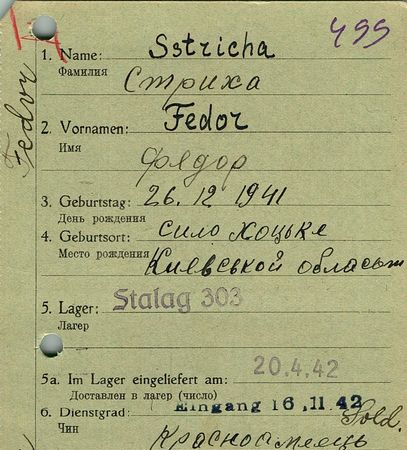 499
1. Name: Sstricha
Фамилия Стриха
Fedor
2. Vornamen: Fedor
Имя Фядор
3. Geburtstag: 26. 12 1941
День рождения
4. Geburtsort: сило Хоцьке
Место рождения Киевськой область
5. Lager: Stalag 303
Лагерь
5a. Im Lager eingeliefert am: 20.4.42
Доставлен в лагерь (число)
Eingang 16.11.42
6. Dienstgrad: Sold.
Чин